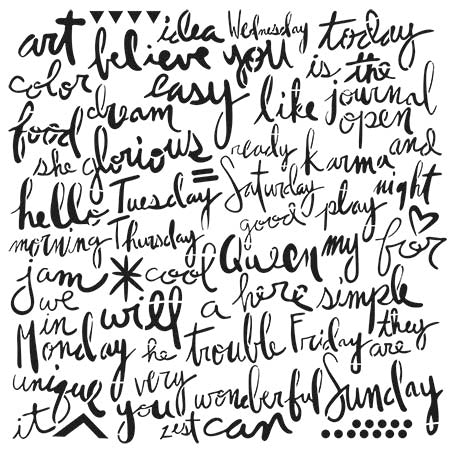 art idea Wednesday today
believe you is the
color easy like journal
dream open
food glorious ready karma and
she = Saturday night
hello Tuesday good play
morning Thursday Queen my for
jam * cool
we will a here simple
in
Monday he trouble Friday they
are
unique very wonderful Sunday
it you zest can